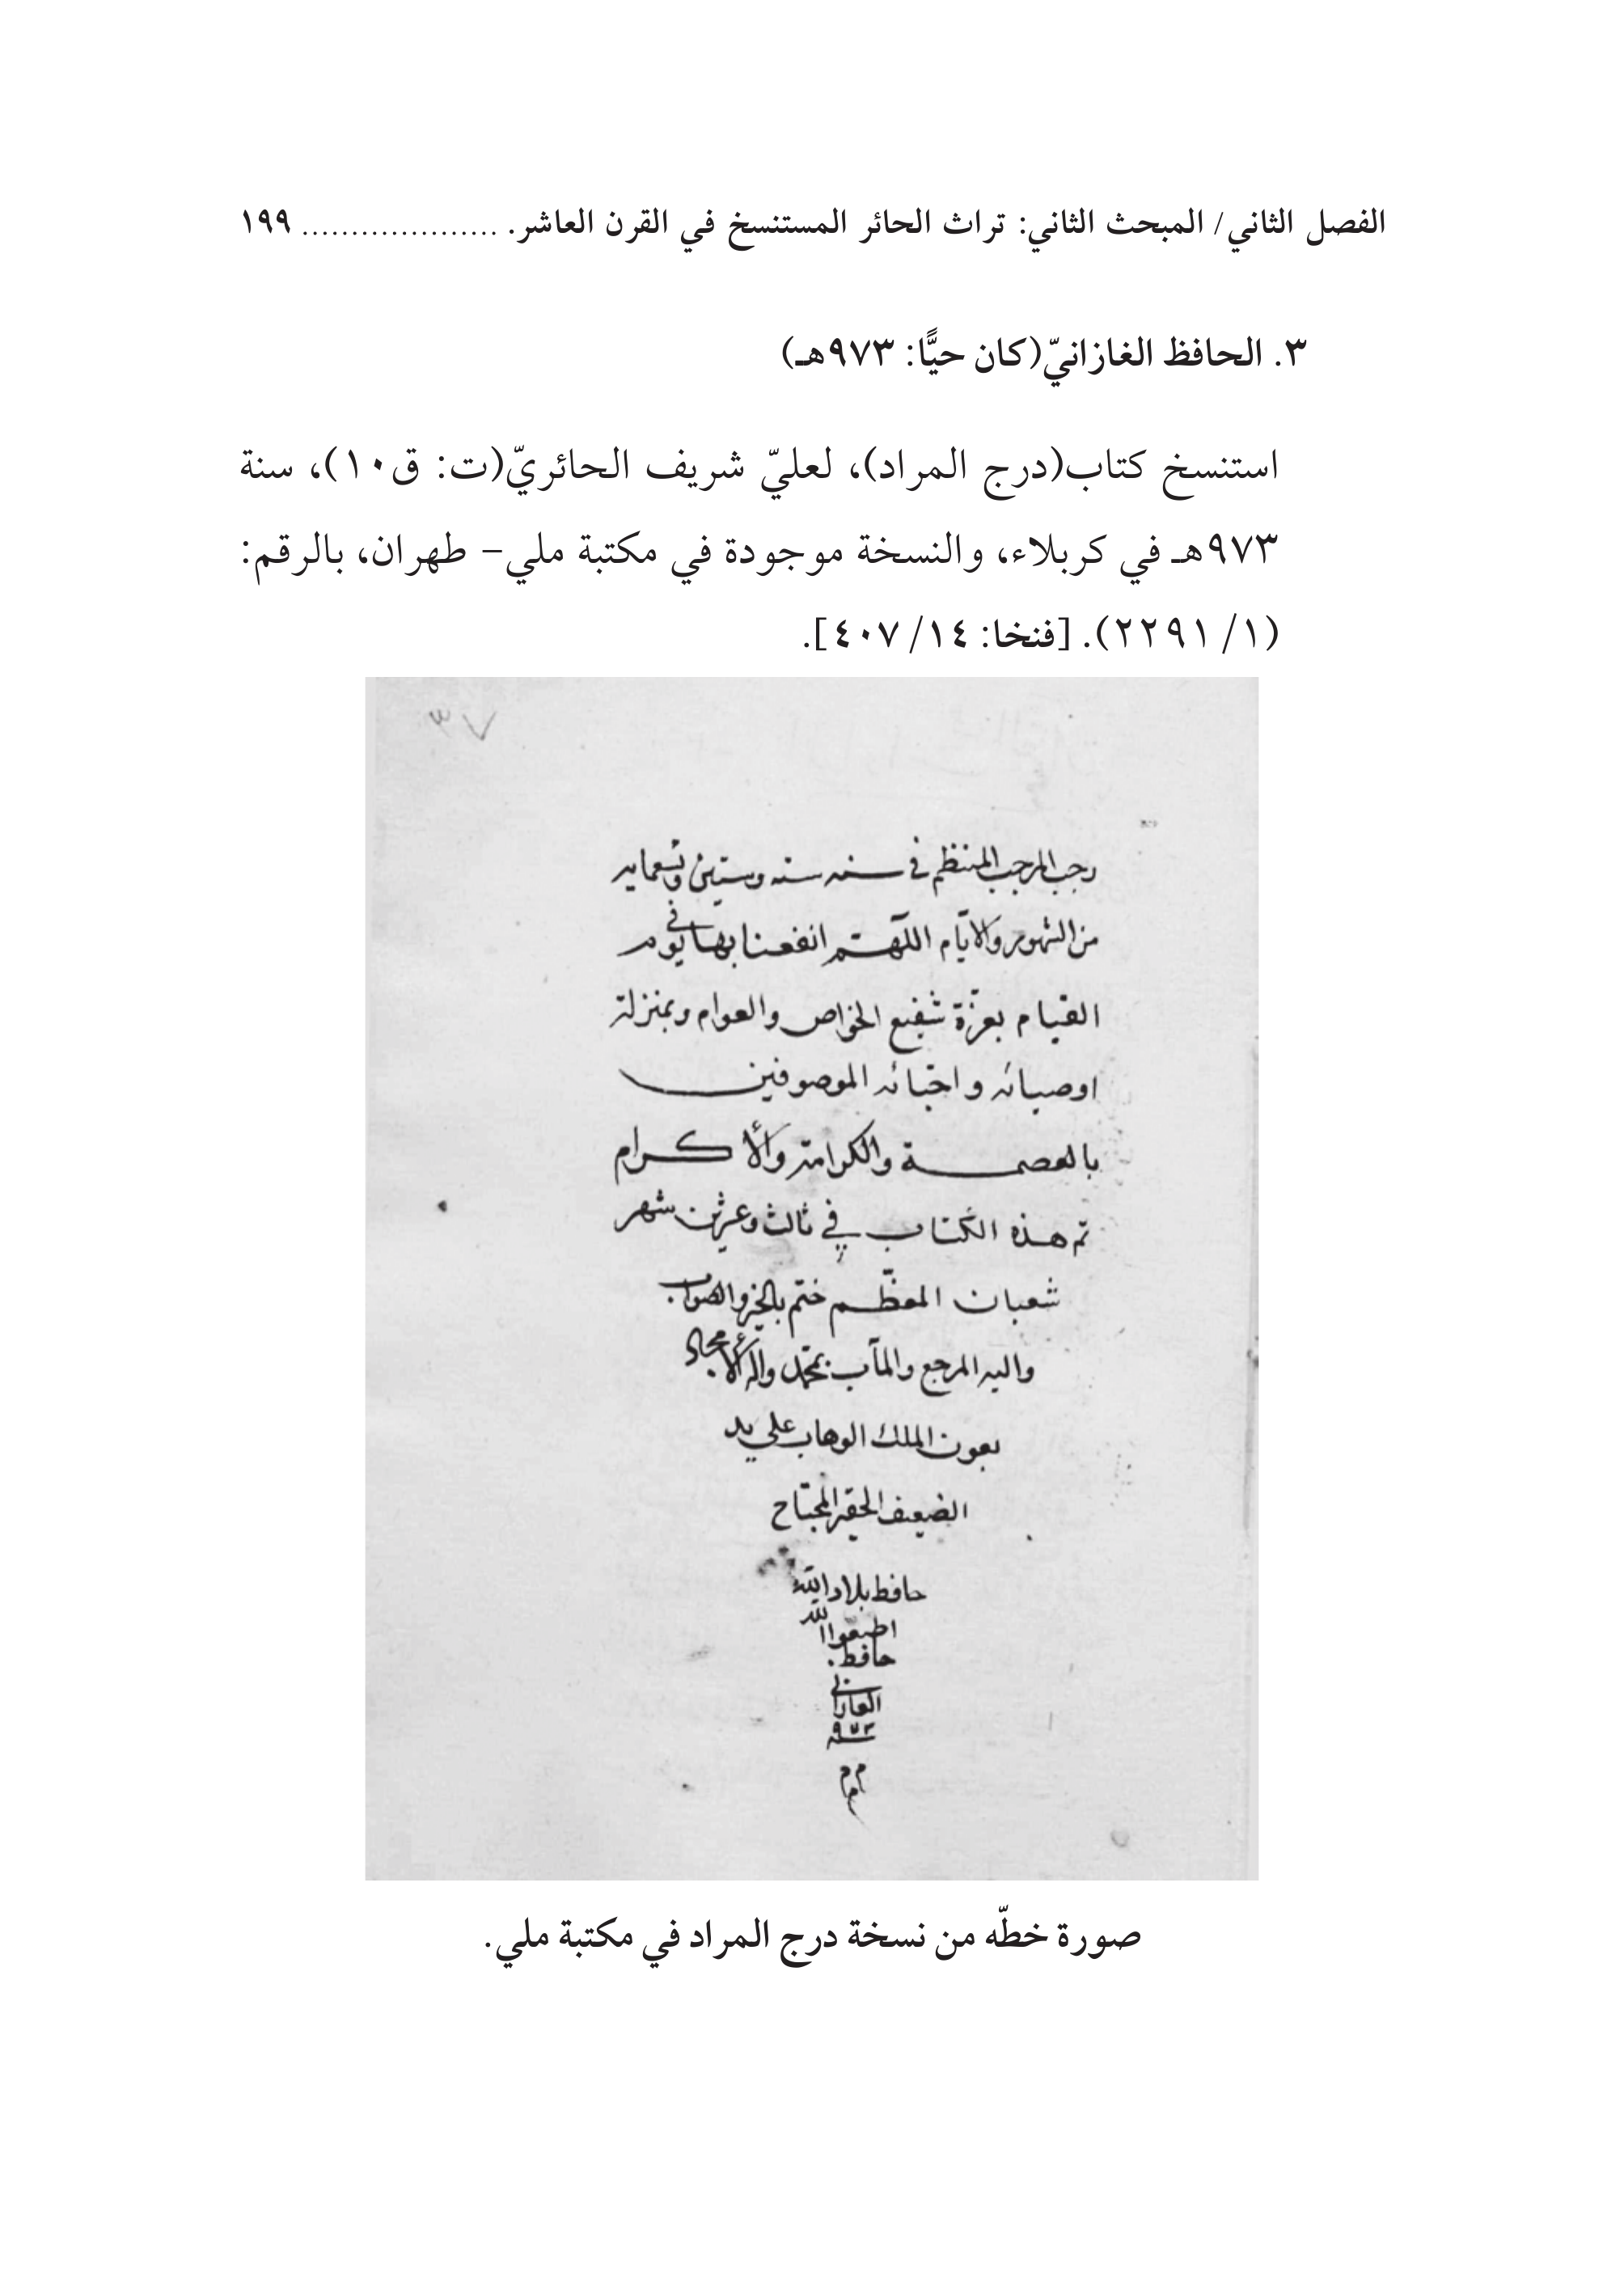 الفصل الثاني/ المبحث الثاني: تراث الحائر المستنسخ في القرن العاشر. .................... ١٩٩
٣. الحافظ الغازانيّ(كان حيًّا: ٩٧٣هـ)
استنسخ كتاب(درج المراد)، لعليّ شريف الحائريّ(ت: ق١٠)، سنة
٩٧٣هـ في كربلاء، والنسخة موجودة في مكتبة ملي– طهران، بالرقم:
(١/ ٢٢٩١). [فنخا: ١٤/ ٤٠٧].
٣٧
رجب المرجب المنتظم في سنه سته وستين وتسعمايه
من الشهور والايّام اللّهم انفعنا بها في يوم
القيام بعزّة شفيع الخواص والعوام وبمنزلة
اوصيائه واحبّائه الموصوفين
بالعصمة والكرامة والأكرام
تم هذه الكتاب في ثالث وعشرين شهر
شعبان المعظّم ختم بالخير والصواب
واليه المرجع والمآب بمحمّد واله الأمجاد
بعون الملك الوهاب علي يد
الضعيف الحقير المحتاج
حافظ بلاد الله
اطيعوا الله
حافظ
الغازاني
سنه ٩٧٣
م م م
صورة خطّه من نسخة درج المراد في مكتبة ملي.